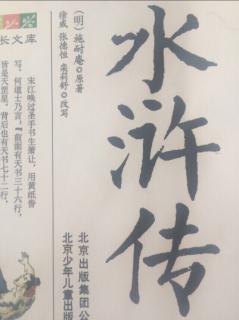 水浒传
(明)施耐庵◎原著
徐威 张德恒 栾莉舒◎改写
北京出版集团公
北京少年儿童出版
长文库
宋江唤过圣手书生萧让，用黄纸誊
写，何道士乃言：“前面有天书三十六行，
皆是天罡星，背后也有天书七十二行，